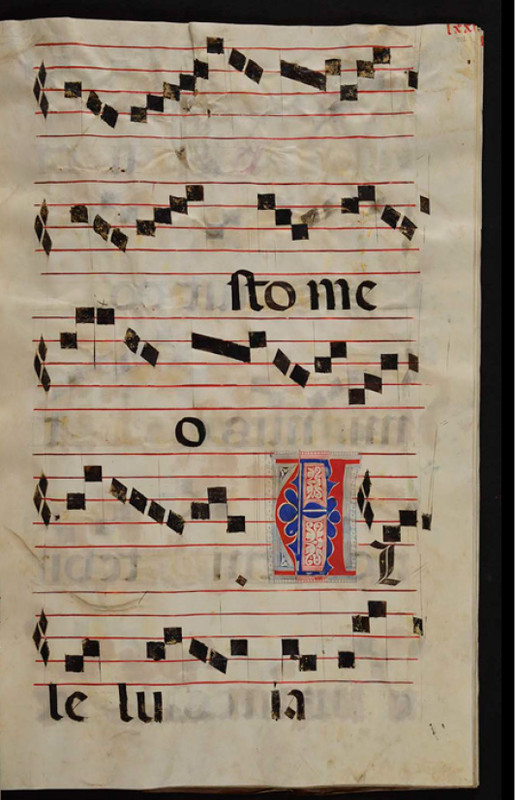 ſto me
o
AL
le lu ia